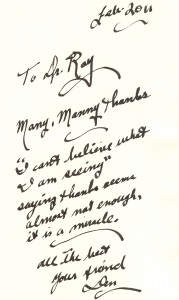 Feb. 2011
To Dr. Ray
Many, Manny thanks
"I cant believe what
I am seeing"
saying thanks seem
almost not enough,
it is a miracle.
all the best
your friend
Den